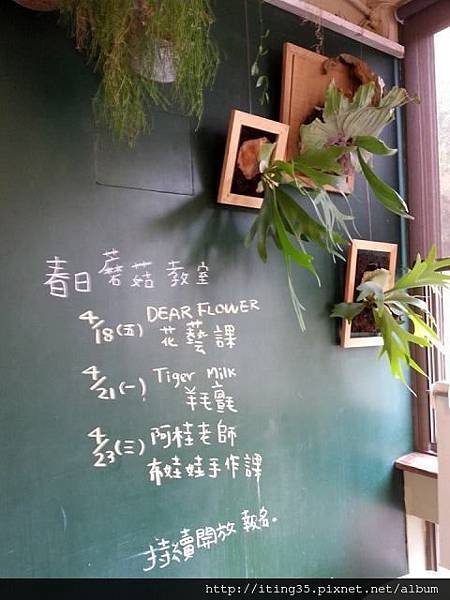 春日蘑菇教室
4/18(五) DEAR FLOWER
花藝課
4/21(一) Tiger Milk
羊毛氈
4/23(三) 阿桂老師
布娃娃手作課
持續開放報名。
http://iting35.pixnet.net/album